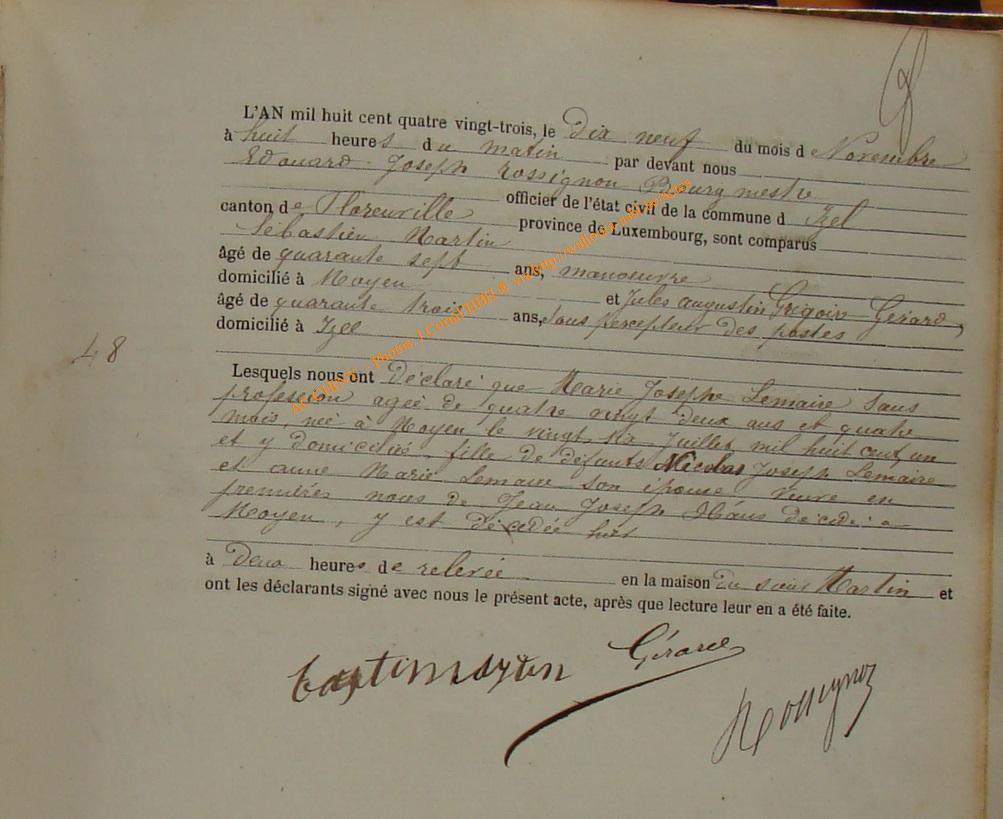 L'AN mil huit cent quatre vingt-trois, le Dix neuf du mois de Novembre
à huit heures du matin par devant nous
Edouard Joseph Rossignon Bourgmestre
officier de l'état civil de la commune d Izel
canton de Florenville province de Luxembourg, sont comparus
Sébastien Martin
âgé de quarante sept ans, manoeuvre
domicilié à Moyen et Jules augustin Grégoire Gérard,
âgé de quarante trois ans, sous percepteur des postes
domicilié à Izel
48
Lesquels nous ont Déclaré que Marie Joseph Lemaire sans
profession agée de quatre vingt deux ans et quatre
mois, née à Moyen le vingt Juillet mil huit cent un
et y domiciliée, fille de défunts Nicolas Joseph Lemaire
et anne Marie Lemaire son épouse Veuve en
premières noces de Jean Joseph décédé à
Moyen, y est décédée hier
à Deux heures de relevée en la maison du sieur Martin et
ont les déclarants signé avec nous le présent acte, après que lecture leur en a été faite.
Gérard
Rossignon